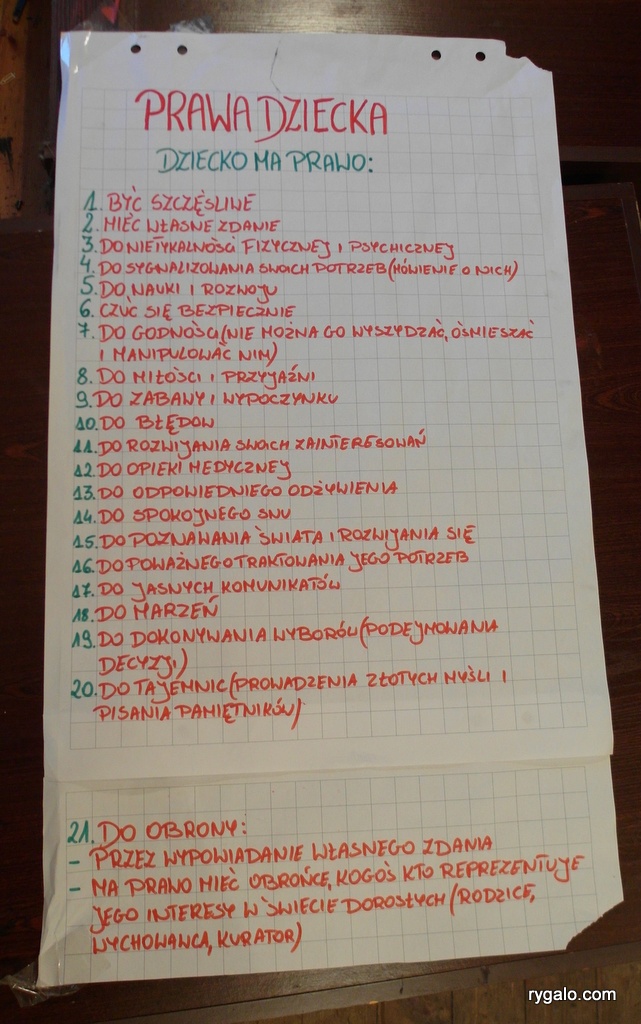 PRAWA DZIECKA
DZIECKO MA PRAWO:
1. BYĆ SZCZĘŚLIWE
2. MIEĆ WŁASNE ZDANIE
3. DO NIETYKALNOŚCI FIZYCZNEJ I PSYCHICZNEJ
4. DO SYGNALIZOWANIA SWOICH POTRZEB (MÓWIENIE O NICH)
5. DO NAUKI I ROZWOJU
6. CZUĆ SIĘ BEZPIECZNIE
7. DO GODNOŚCI (NIE MOŻNA GO WYSZYDZAĆ, OŚMIESZAĆ
I MANIPULOWAĆ NIM)
8. DO MIŁOŚCI I PRZYJAŹNI
9. DO ZABAWY I WYPOCZYNKU
10. DO BŁĘDÓW
11. DO ROZWIJANIA SWOICH ZAINTERESOWAŃ
12. DO OPIEKI MEDYCZNEJ
13. DO ODPOWIEDNIEGO ODŻYWIENIA
14. DO SPOKOJNEGO SNU
15. DO POZNAWANIA ŚWIATA I ROZWIJANIA SIĘ
16. DO POWAŻNEGO TRAKTOWANIA JEGO POTRZEB
17. DO JASNYCH KOMUNIKATÓW
18. DO MARZEŃ
19. DO DOKONYWANIA WYBORÓW (PODEJMOWANIA
DECYZJI)
20. DO TAJEMNIC (PROWADZENIA ZŁOTYCH MYŚLI I
PISANIA PAMIĘTNIKÓW)
21. DO OBRONY:
- PRZEZ WYPOWIADANIE WŁASNEGO ZDANIA
- MA PRAWO MIEĆ OBROŃCĘ, KOGOŚ KTO REPREZENTUJE
JEGO INTERESY W ŚWIECIE DOROSŁYCH (RODZICE,
WYCHOWAWCA, KURATOR)
rygalo.com